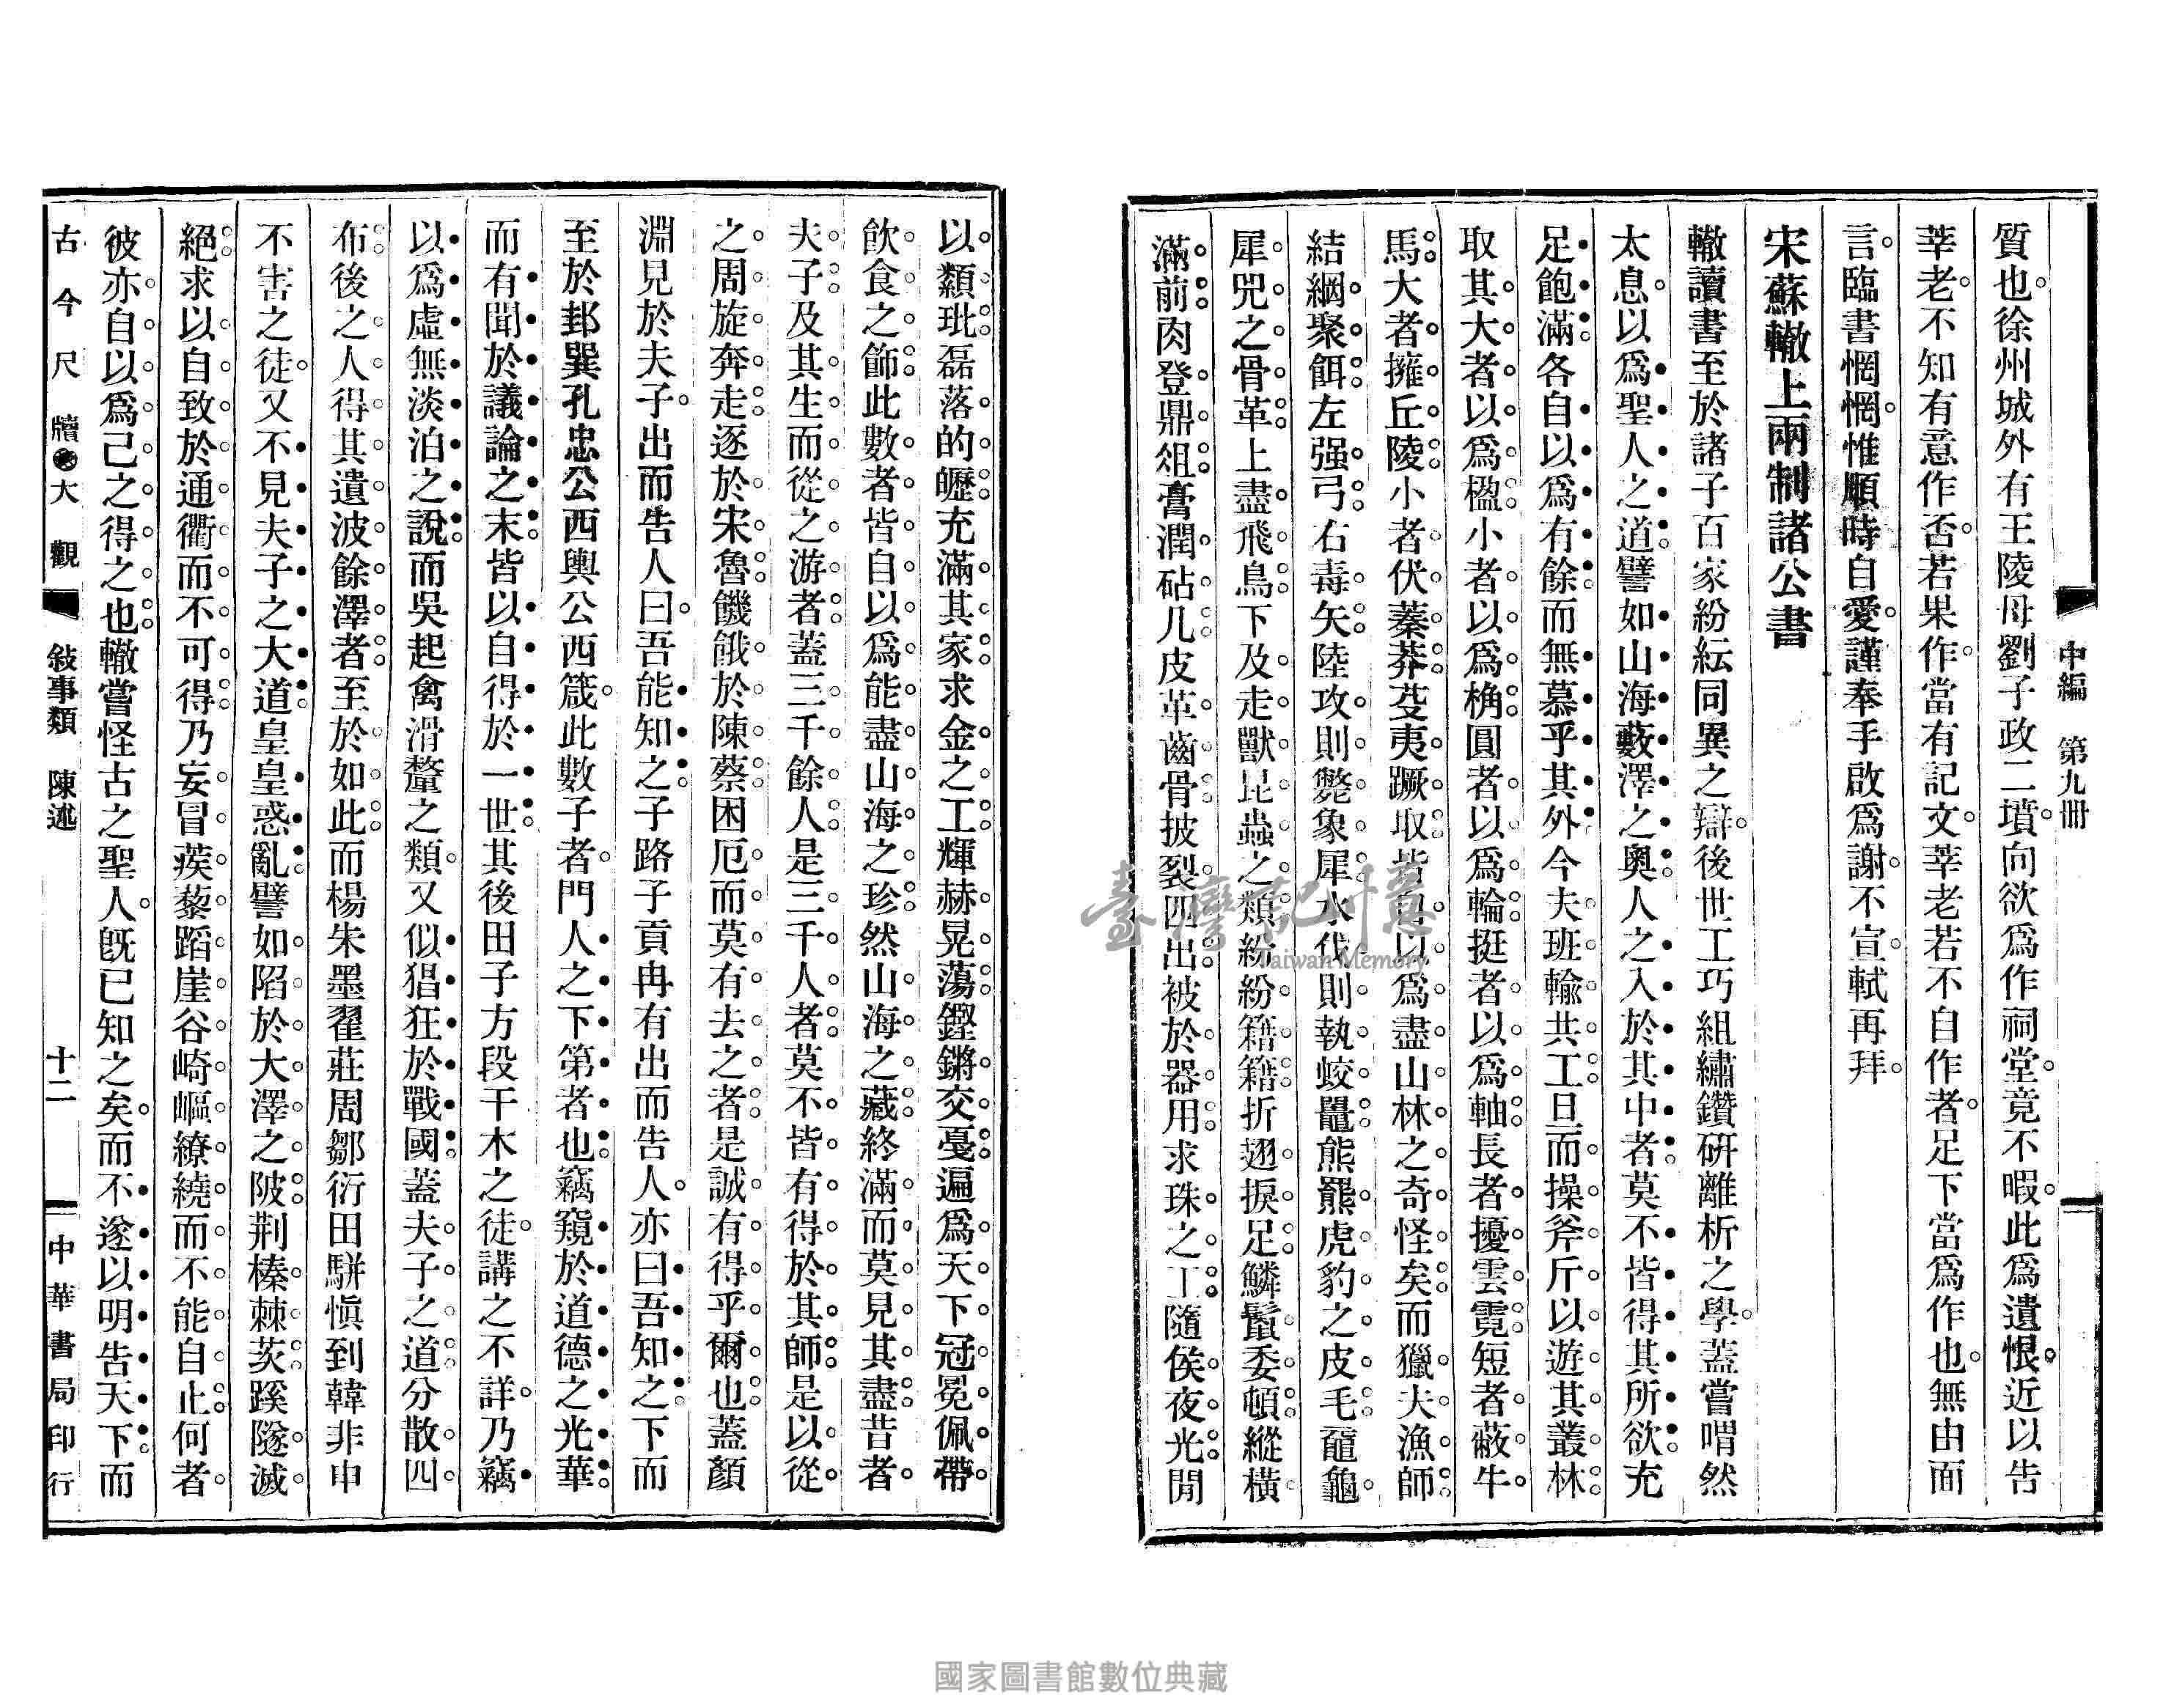 中編 第九冊
質也徐州城外有王陵母劉子政二墳向欲爲作祠堂竟不暇此爲遺恨近以告
莘老不知有意作否若果作當有記文莘老若不自作者足下當爲作也無由面
言臨書惘惘惟順時自愛謹奉手啟爲謝不宣軾再拜
宋蘇轍上兩制諸公書
轍讀書至於諸子百家紛紜同異之辯後世工巧組繡鑽研離析之學蓋嘗喟然
太息以爲聖人之道譬如山海藪澤之奧人之入於其中者莫不皆得其所欲充
足飽滿各自以爲有餘而無慕乎其外今夫班輸共工旦而操斧斤以遊其叢林
取其大者以爲楹小者以爲桷圓者以爲輪挺者以爲軸長者擾雲霓短者蔽牛
馬大者擁丘陵小者伏蓁莽芟夷蹶取皆自以爲盡山林之奇怪矣而獵夫漁師
結網聚餌左强弓右毒矢陸攻則斃象犀水伐則執蛟鼉熊羆虎豹之皮毛黿龜
犀兕之骨革上盡飛鳥下及走獸昆蟲之類紛紛籍籍折翅捩足鱗鬣委頓縱橫
滿前肉登鼎俎膏潤砧几皮革齒骨披裂四出被於器用求珠之工隨侯夜光閒
以纇玭磊落的皪充滿其家求金之工輝赫晃蕩鏗鏘交戞遍爲天下冠冕佩帶
飲食之飾此數者皆自以爲能盡山海之珍然山海之藏終滿而莫見其盡昔者
夫子及其生而從之游者蓋三千餘人是三千人者莫不皆有得於其師是以從
之周旋奔走逐於宋魯饑餓於陳蔡困厄而莫有去之者是誠有得乎爾也蓋顏
淵見於夫子出而告人曰吾能知之子路子貢冉有出而告人亦曰吾知之下而
至於邽巽孔忠公西輿公西箴此數子者門人之下第者也竊窺於道德之光華
而有聞於議論之末皆以自得於一世其後田子方段干木之徒講之不詳乃竊
以爲虛無淡泊之說而吳起禽滑釐之類又似猖狂於戰國蓋夫子之道分散四
布後之人得其遺波餘澤者至於如此而楊朱墨翟莊周鄒衍田駢愼到韓非申
不害之徒又不見夫子之大道皇皇惑亂譬如陷於大澤之陂荆榛棘茨蹊隧滅
絕求以自致於通衢而不可得乃妄冒蒺藜蹈崖谷崎嶇繚繞而不能自止何者
彼亦自以爲己之得之也轍嘗怪古之聖人旣已知之矣而不遂以明告天下而
古今尺牘大觀 敍事類 陳述 十二 中華書局印行
臺灣記憶
Taiwan Memory
國家圖書館數位典藏